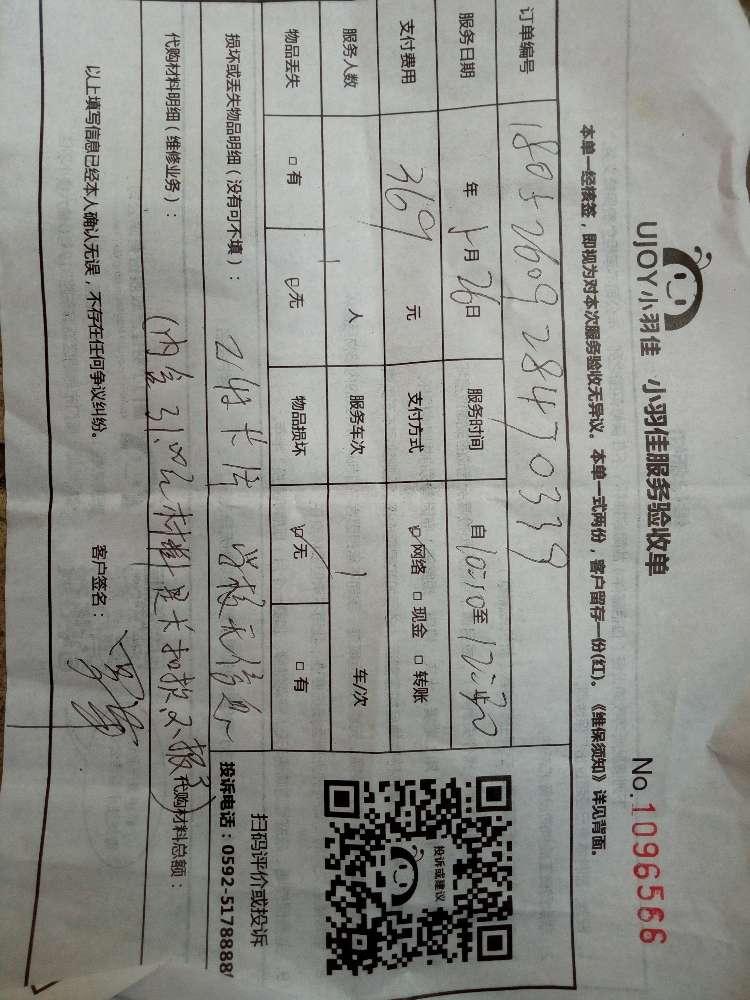 UJOY小羽佳 小羽佳服务验收单 No.1096566
本单一经核签，即视为对本次服务验收无异议。本单一式两份，客户留存一份(红)。《维保须知》详见背面。
订单编号 1805260928470339
服务日期 年 5月26日 服务时间 自10:10至12:30
支付费用 369 元 支付方式 网络 □ 现金 □ 转账
服务人数 1 人 服务车次 1 车/次
物品丢失 □ 有 无 物品损坏 无 □ 有
损坏或丢失物品明细（没有可不填）：
代购材料明细（维修业务）： 代购材料总额：
以上填写信息已经本人确认无误，不存在任何争议纠纷。 客户签名：
投诉或建议
扫码评价或投诉
投诉电话：0592-5178888